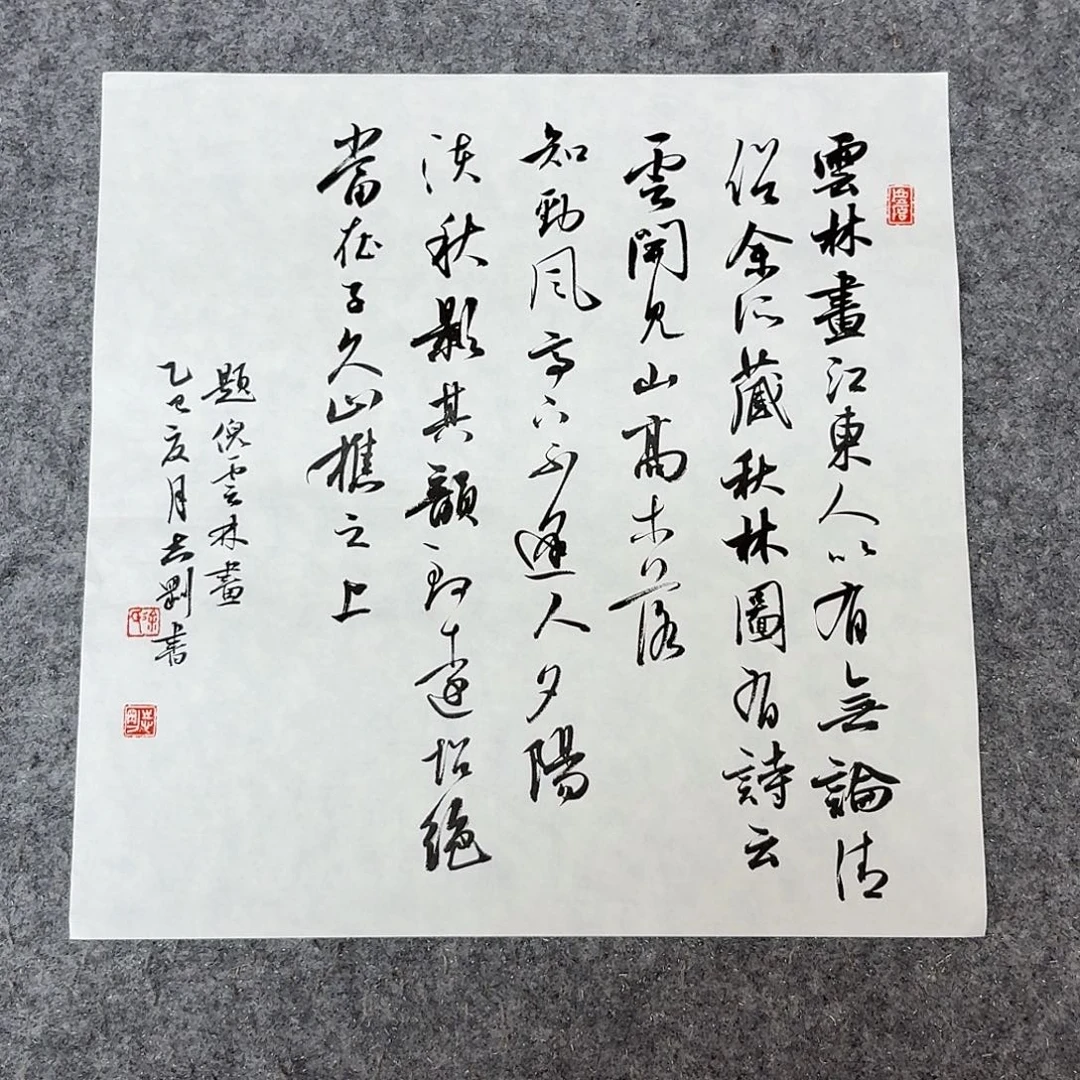 雲林畫江東人以有無論清
俗余所藏秋林圖有詩云
雲開見山高木落
知勁風亭下不逢人夕陽
淡秋影其韻致遒超絕
當在子久山樵之上
題倪雲林畫
乙巳夏月志剛書